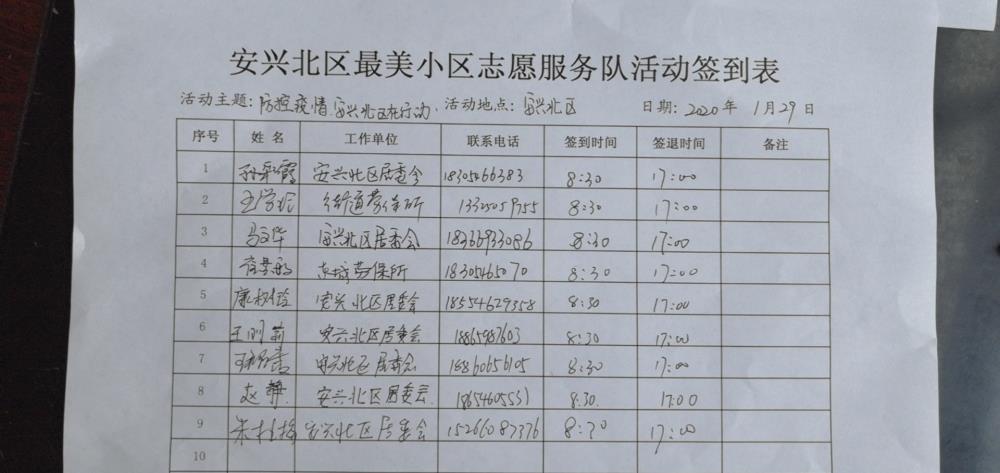 安兴北区最美小区志愿服务队活动签到表
活动主题: 防控疫情.安兴北区在行动. 活动地点: 安兴北区 日期: 2020年 1月29日
序号 姓名 工作单位 联系电话 签到时间 签退时间 备注
1 孙彩霞 安兴北区居委会 18305466383 8:30 17:00
2 街道劳保所 13325059755 8:30 17:00
3 马文华 安兴北区居委会 18366933086 8:30 17:00
4 东城劳保所 18305465070 8:30 17:00
5 安兴北区居委会 18554629358 8:30 17:00
6 安兴北区居委会 18865987603 8:30 17:00
7 安兴北区居委会 18860656105 8:30 17:00
8 赵静 安兴北区居委会 8:30 17:00
9 朱桂梅 安兴北区居委会 15266087376 8:30 17:00
10